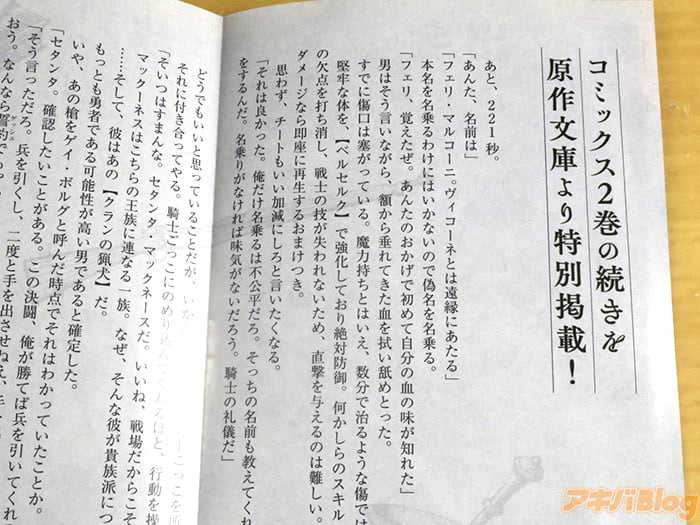 コミックス2巻の続きを
原作文庫より特別掲載！
あと、221秒。
「あんた、名前は」
「フェリ・マルコーニ。ヴィコーネとは遠縁にあたる」
本名を名乗るわけにはいかないので偽名を名乗る。
「フェリ、覚えたぜ。あんたのおかげで初めて自分の血の味が知れた」
男はそう言いながら、額から垂れてきた血を拭い舐めとった。
すでに傷口は塞がっている。魔力持ちとはいえ、数分で治るような傷では
堅牢な体を、【ベルセルク】で強化しており絶対防御。何かしらのスキル
の欠点を打ち消し、戦士の技が失われないため、直撃を与えるのは難しい。
ダメージなら即座に再生するおまけつき。
思わず、チートもいい加減にしろと言いたくなる。
「それは良かった。俺だけ名乗るは不公平だろ。そっちの名前も教えてくれ
をするんだ。名乗りがなければ味気がないだろう。騎士の礼儀だ」
どうでもいいと思っていることだが、いかん
それに付き合ってやる。騎士ごっこにのめり込んで
ほど、行動を操
「そいつはすまんな。セタンタ・マックネースだ。いいね、戦場だからこそ
マックネースはこちらの王族に連なる一族。なぜ、そんな彼が貴族派につ
……そして、彼はあの【クランの猟犬】だ。
もっとも勇者である可能性が高い男であると確定した。
いや、あの槍をゲイ・ボルグと呼んだ時点でそれはわかっていたことか。
「セタンタ。確認したいことがある。この決闘、俺が勝てば兵を引いてくれ
「そう言っただろ。兵を引くし、二度と手を出させねえ
おう。なんなら誓約
アキバBlog